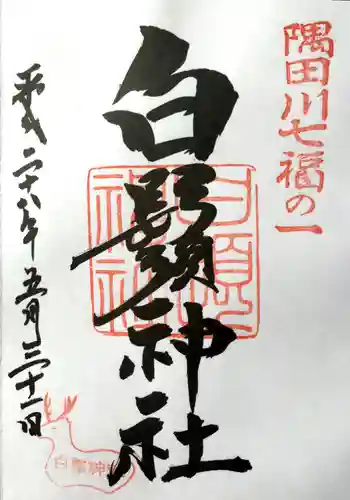 隅田川七福の一
白鬚神社
平成二十八年五月三十一日
白鬚神社
白鬚神